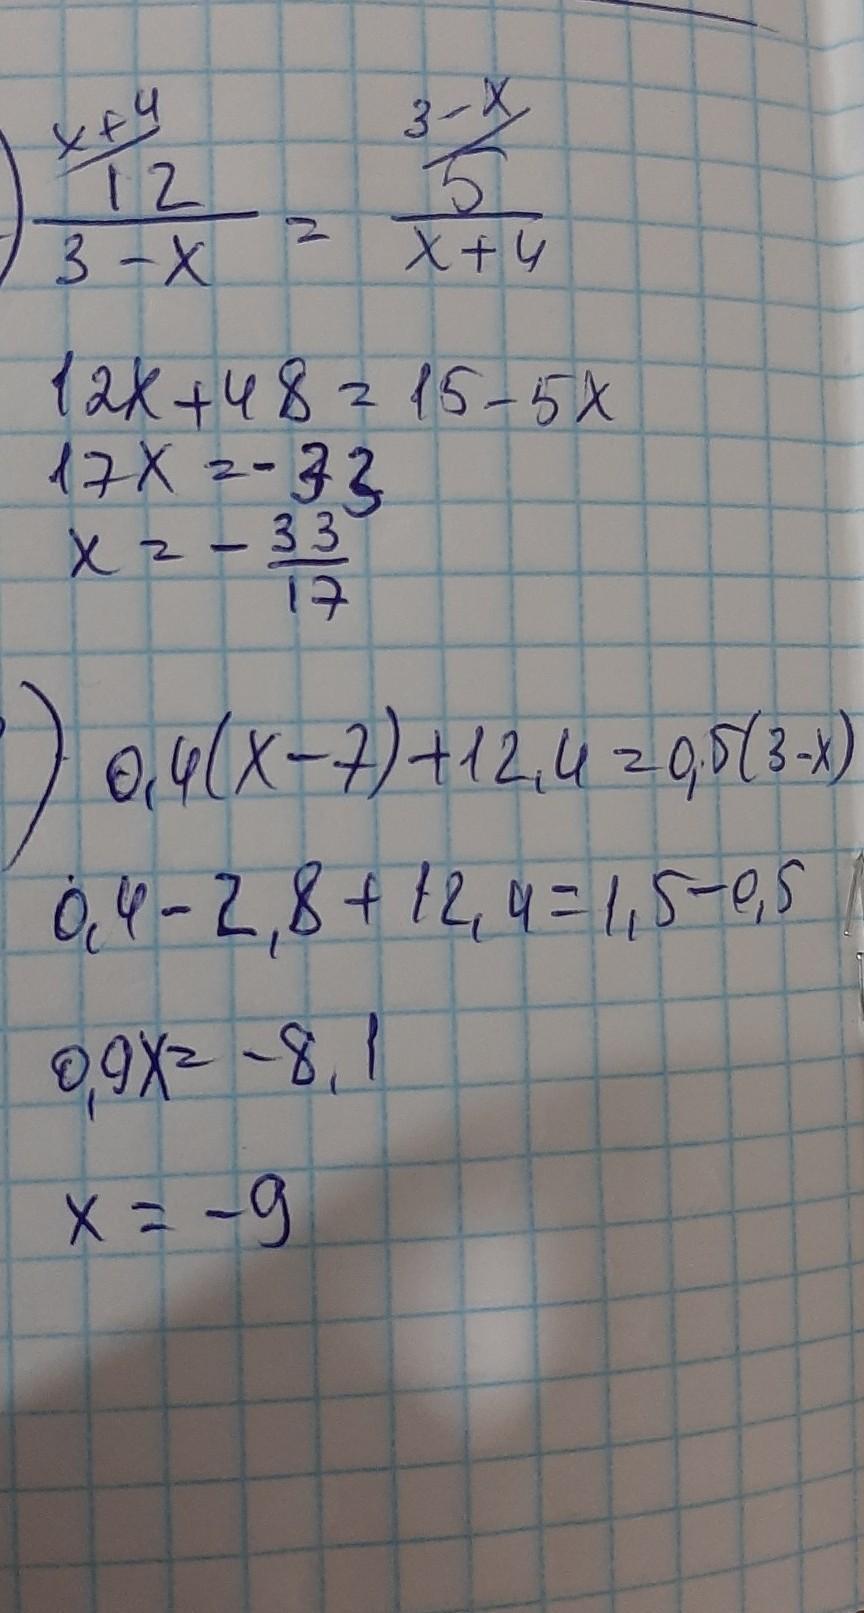 x+4 3-x
) 12 = 5
3-x x+4
12x+48=15-5x
17x=-33
x=-33/17
) 0,4(x-7)+12,4=0,5(3-x)
0,4-2,8+12,4=1,5-0,5
0,9x=-8,1
x=-9